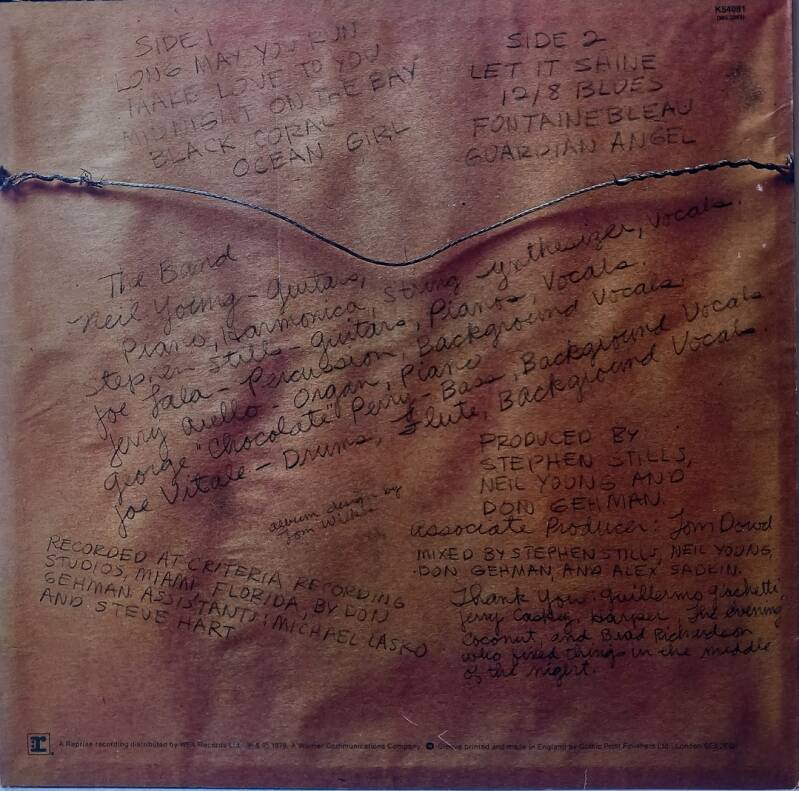 K54081
SIDE 1
LONG MAY YOU RUN
MAKE LOVE TO YOU
MIDNIGHT ON THE BAY
BLACK CORAL
OCEAN GIRL
SIDE 2
LET IT SHINE
12/8 BLUES
FONTAINEBLEAU
GUARDIAN ANGEL
The Band
Neil Young - Guitars,
Piano, Harmonica, String Synthesizer, Vocals.
Stephen Stills - Guitars, Pianos, Vocals.
Joe Lala - Percussion, Background Vocals
Jerry Aiello - Organ, Piano
George "Chocolate" Perry - Bass, Background Vocals
Joe Vitale - Drums, Flute, Background Vocals.
PRODUCED BY
STEPHEN STILLS,
NEIL YOUNG AND
DON GEHMAN.
Associate Producer: Tom Dowd
MIXED BY STEPHEN STILLS, NEIL YOUNG,
DON GEHMAN, AND ALEX SADKIN.
album design by
Tom Wilkes
RECORDED AT CRITERIA RECORDING
STUDIOS, MIAMI FLORIDA, BY DON
GEHMAN ASSISTANTS: MICHAEL LASKO
AND STEVE HART
Thank You: Guillermo Giachetti,
Jerry Caskey, Harper, The evening
Coconut, and Brad Richardson
who fixed things in the middle
of the night.
r
A Reprise recording distributed by WEA Records Ltd. ℗ & © 1976. A Warner Communications Company. Sleeve printed and made in England by Gothic Print Finishers Ltd., London